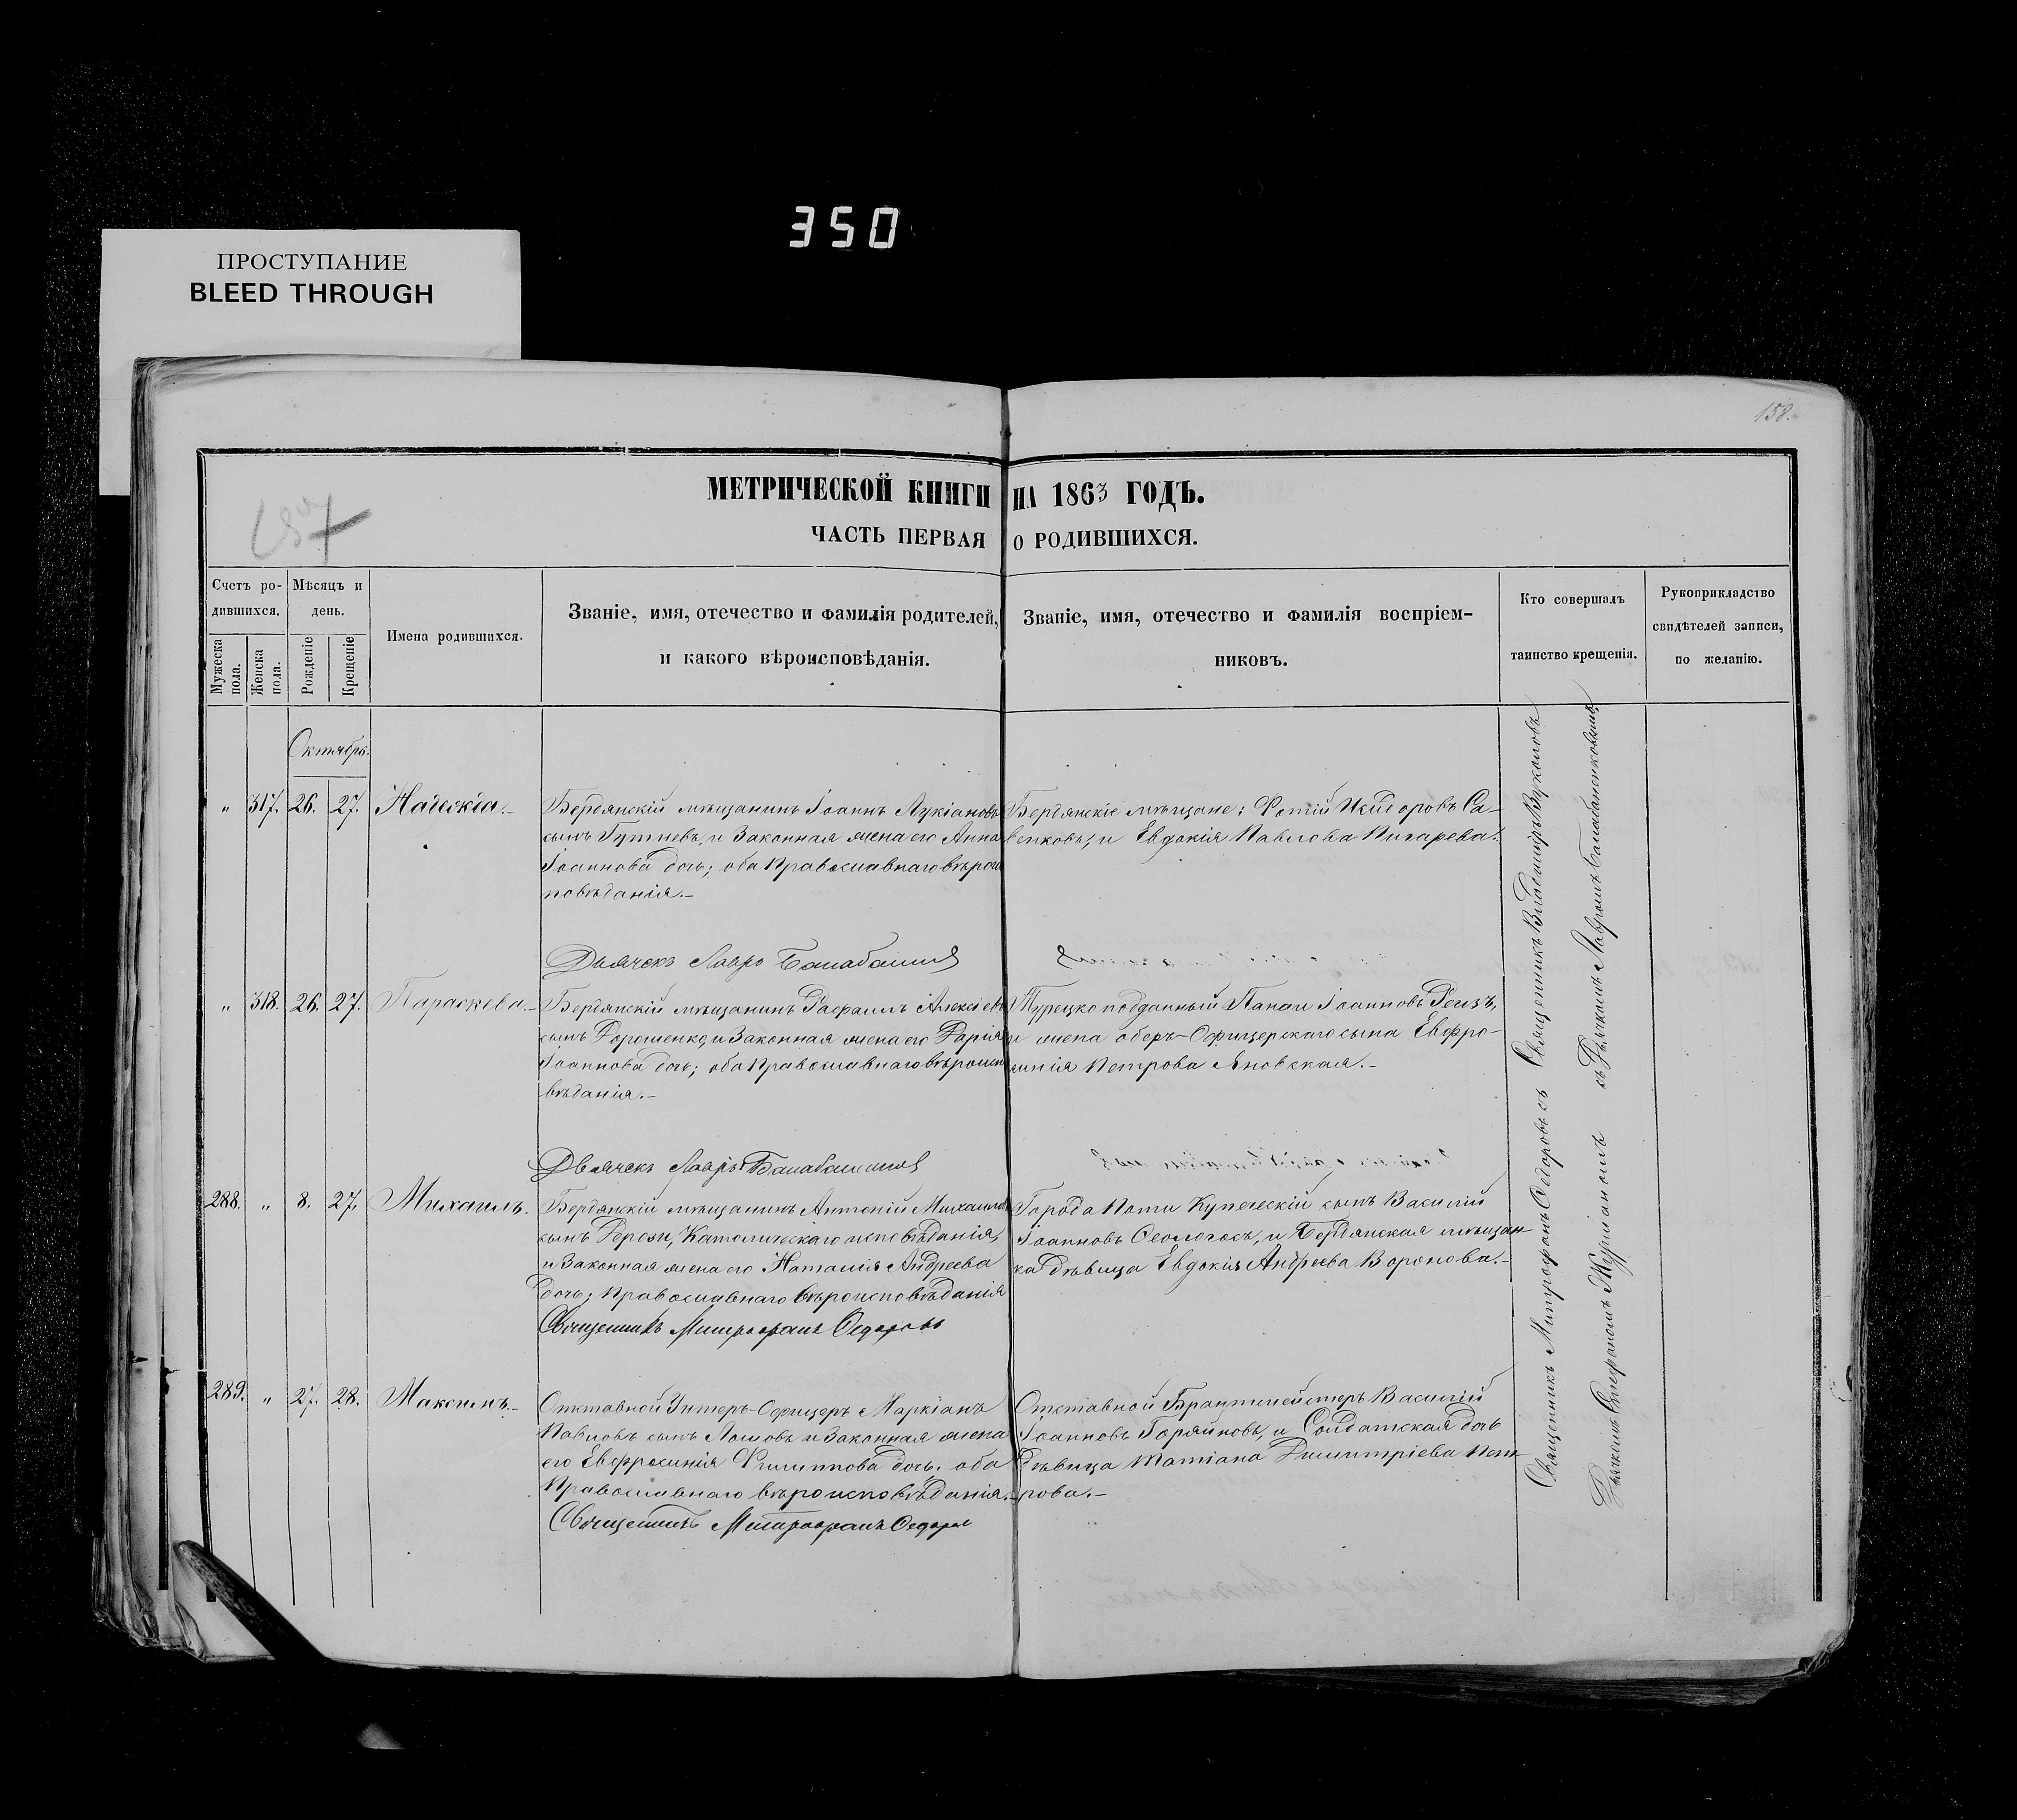 350
ПРОСТУПАНИЕ
BLEED THROUGH
158.
МЕТРИЧЕСКОЙ КНИГИ НА 1863 ГОДЪ.
ЧАСТЬ ПЕРВАЯ О РОДИВШИХСЯ.
Счетъ ро-
дившихся.
Мужеска пола.
Женска пола.
Мѣсяцъ и
день.
Рожденіе
Крещеніе
Имена родившихся.
Званіе, имя, отчество и фамилія родителей,
и какого вѣроисповѣданія.
Званіе, имя, отчество и фамилія воспріем-
никовъ.
Кто совершалъ
таинство крещенія.
Рукоприкладство
свидѣтелей записи,
по желанію.
Октябрь.
" 317. 26. 27. Надежда.-
Бердянскій мѣщанинъ Іоаннъ Лукіановъ
сынъ и Законная жена его Анна
Іоаннова дочь; оба Православнаго вѣроис
повѣданія.-
Бердянскіе мѣщане: Фотій Исидоровъ Са-
венковъ, и Евдокія Павлова Писарева.
Дьячекъ Лавръ
" 318. 26. 27. Параскева.-
Бердянскій мѣщанинъ Рафаилъ Алексіевъ
сынъ Дорошенко, и Законная жена его Дарія
Іоаннова дочь; оба Православнаго вѣроиспо
вѣданія.-
Турецкоподданный Папаи Іоанновъ Реизъ,
и жена оберъ-Офицерскаго сына Евфро-
синія Петрова Яновская.-
Дьячекъ Лавръ
288. " 8. 27. Михаилъ.
Бердянскій мѣщанинъ Антоній Михаиловъ
сынъ Дерози, Католическаго исповѣданія,
и Законная жена его Наталія Андреева
дочь; Православнаго вѣроисповѣданія
Города Поти Купеческій сынъ Василій
Іоанновъ Ѳеологосъ, и Бердянская мѣщан-
ка дѣвица Евдокія Андреева Воронова.-
Священникъ Митрофанъ Ѳедоровъ
289. " 27. 28. Максимъ.-
Отставной Унтеръ-Офицеръ Маркіанъ
Павловъ сынъ Ломовъ и Законная жена
его Евфросинія Филиппова дочь. оба
Православнаго вѣроисповѣданія.-
Отставной Брантмейстеръ Василій
Іоанновъ Горяйновъ, и Солдатская дочь
Дѣвица Татіана Димитріева Пет-
рова.-
Священникъ Митрофанъ Ѳедоровъ
Священникъ Митрофанъ Ѳедоровъ съ
Дьячкомъ Стефаномъ Журіаномъ
Священникъ Владиміръ Вуколовъ
съ Дьячкомъ Лавромъ